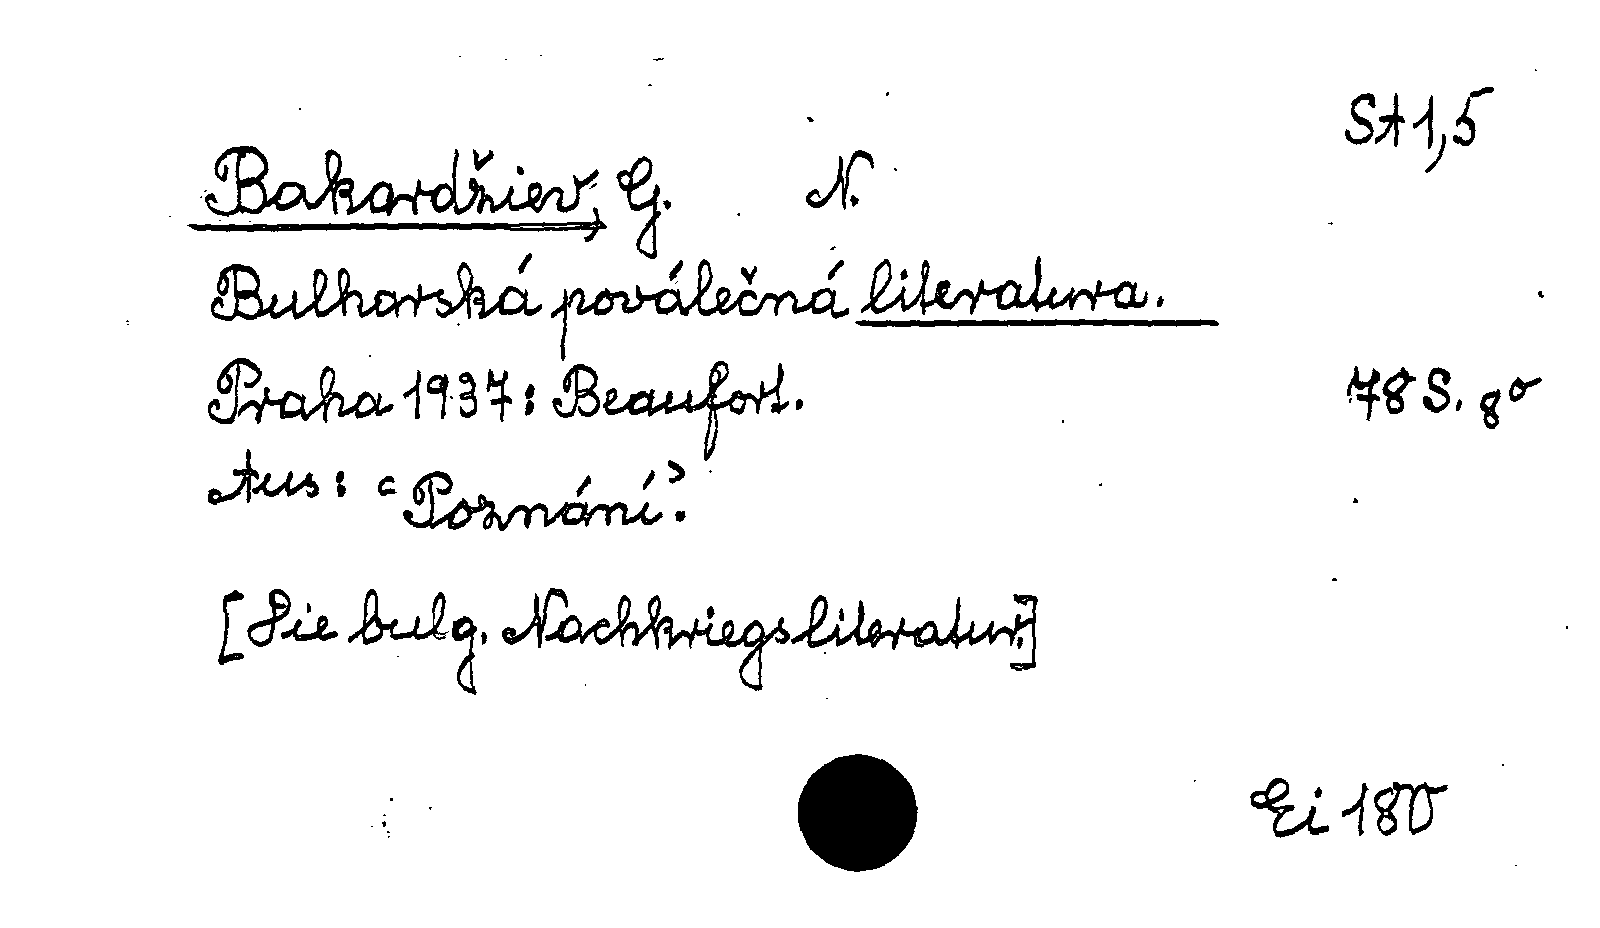 St 1,5
Bakardžiev, G. N.
Bulharská poválečná literatura.
Praha 1937: Beaufort. 78 S. 8°
Aus: "Poznání".
[Die bulg. Nachkriegsliteratur.]
Ei 180